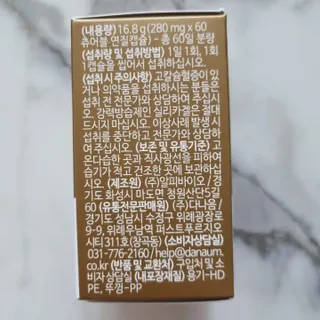 (내용량) 16.8 g (280 mg x 60
츄어블 연질캡슐) - 총 60일 분량
(섭취량 및 섭취방법) 1일 1회, 1회
1캡슐을 씹어서 섭취하십시오.
(섭취시 주의사항) 고칼슘혈증이 있
거나 의약품을 섭취하시는 분들은
섭취 전 전문가와 상담하여 주십시
오. 강력방습제인 실리카겔은 절대
드시지 마십시오. 이상사례 발생 시
섭취를 중단하고 전문가와 상담하
여 주십시오. (보존 및 유통기준) 고
온다습한 곳과 직사광선을 피하여
습기가 적고 건조한 곳에 보관하십
시오. (제조원) (주)알피바이오 / 경
기도 화성시 마도면 청원산단5길
60 (유통전문판매원) (주)다나음 /
경기도 성남시 수정구 위례광장로
9-9, 위례우남역 퍼스트푸르지오
시티 311호(창곡동) (소비자상담실)
031-776-2160 / help@danaum.
co.kr (반품 및 교환처) 구입처 및 소
비자 상담실 (내포장재질) 용기-HD
PE, 뚜껑-PP